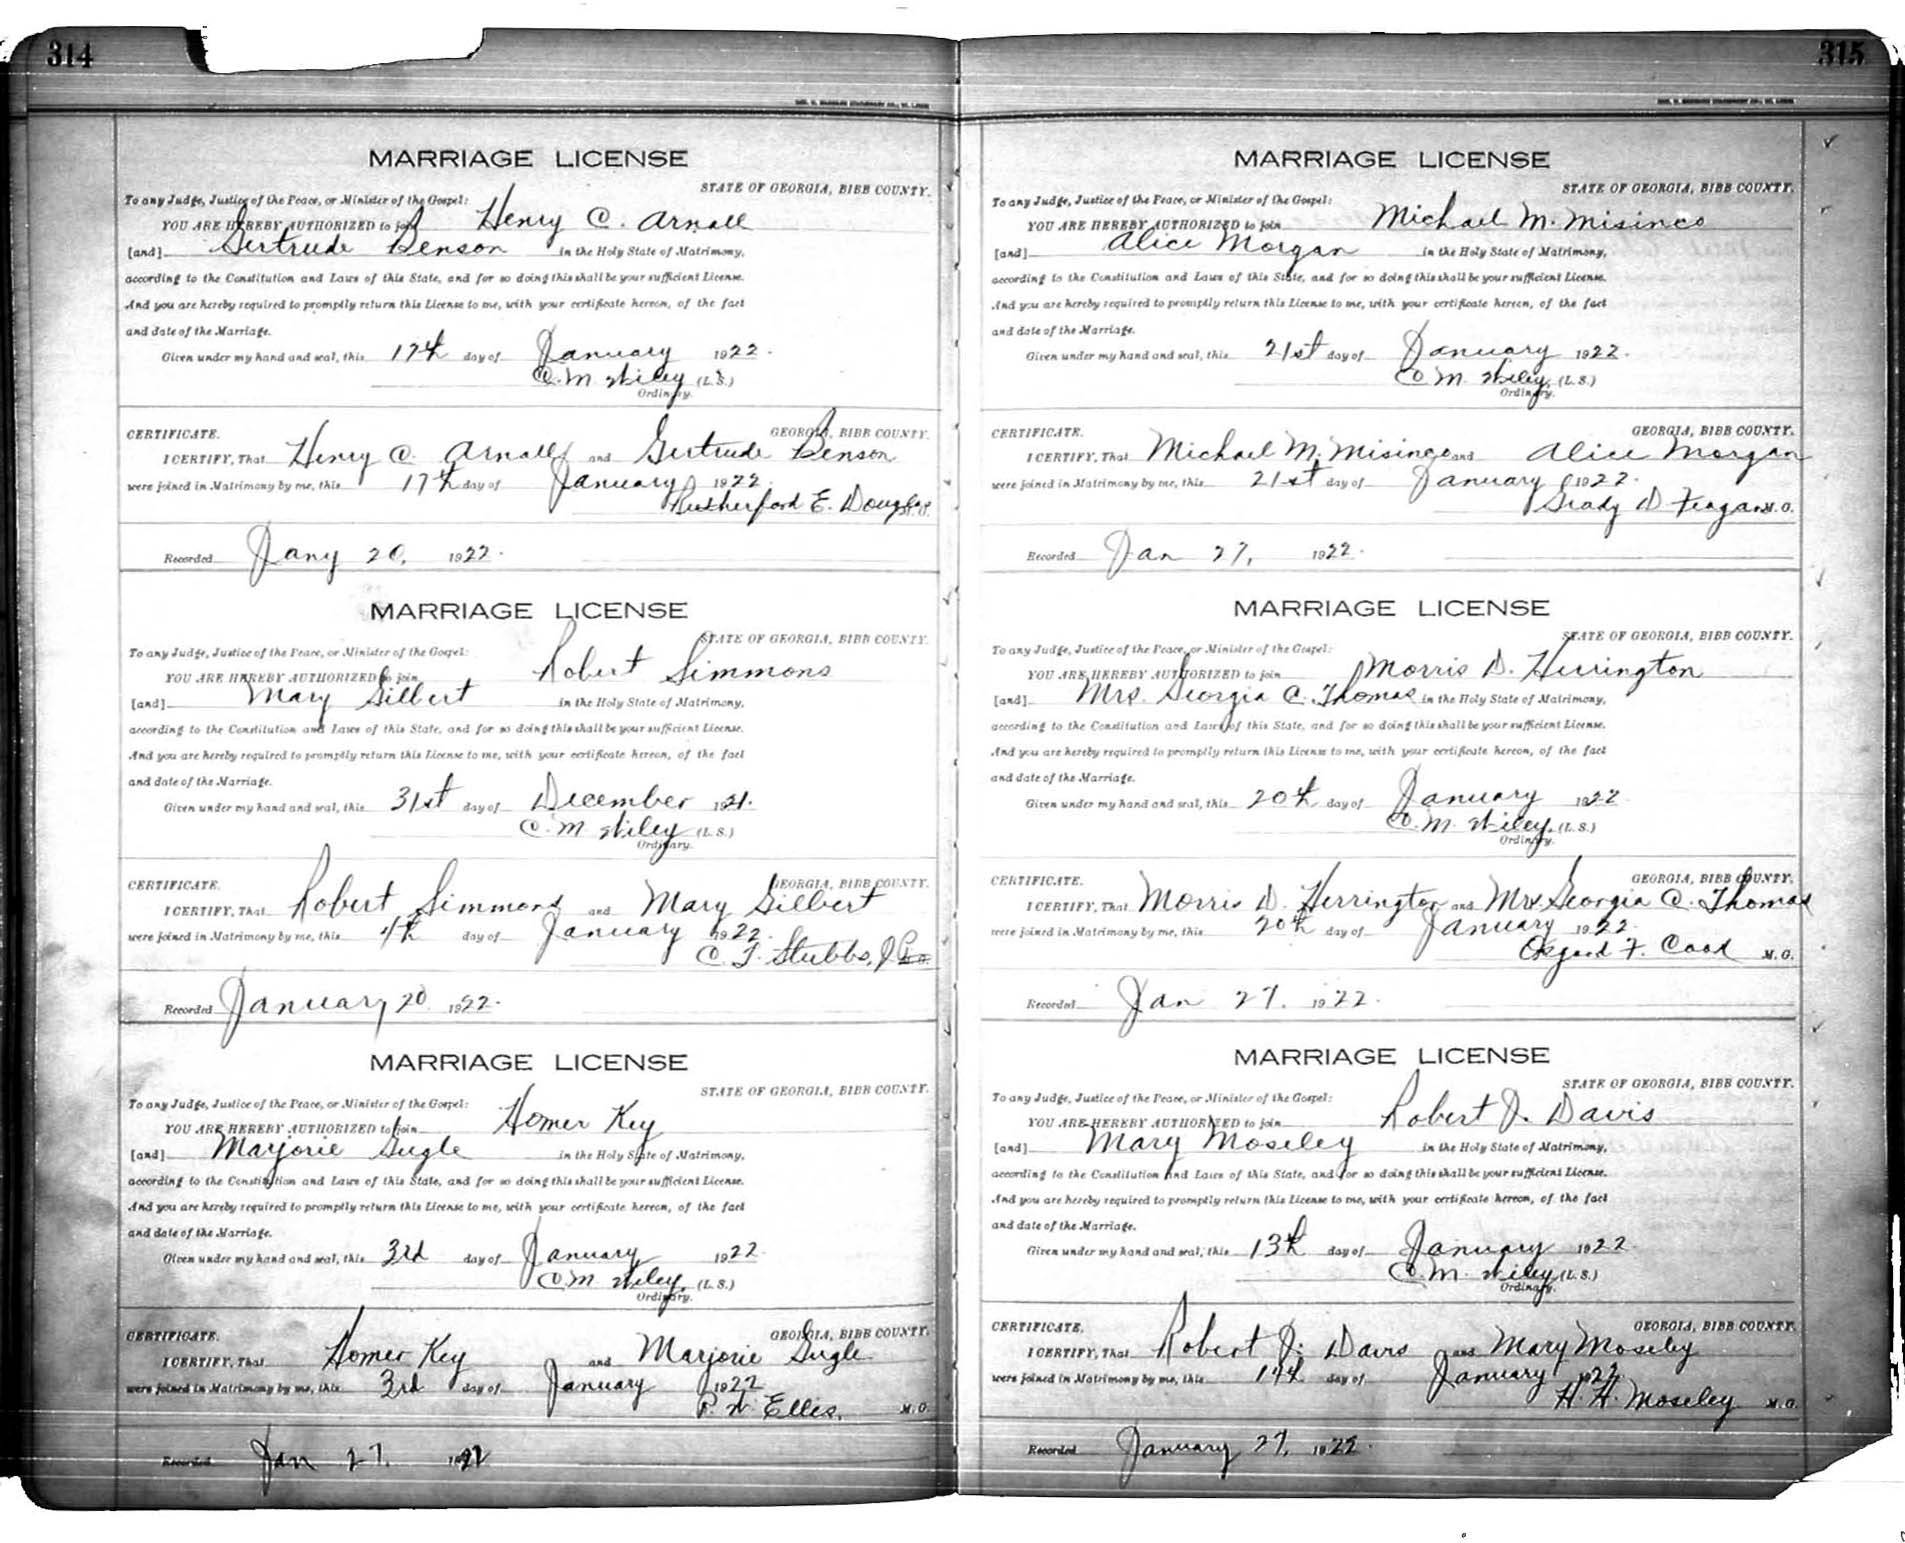 314
MARRIAGE LICENSE
STATE OF GEORGIA, BIBB COUNTY.
To any Judge, Justice of the Peace, or Minister of the Gospel:
YOU ARE HEREBY AUTHORIZED to join Henry C. Arnall
[and] Gertrude Benson in the Holy State of Matrimony,
according to the Constitution and Laws of this State, and for so doing this shall be your sufficient License.
And you are hereby required to promptly return this License to me, with your certificate hereon, of the fact
and date of the Marriage.
Given under my hand and seal, this 17th day of January 1922.
C. M. Wiley (L. S.)
Ordinary.
CERTIFICATE. GEORGIA, BIBB COUNTY.
I CERTIFY, That Henry C. Arnall and Gertrude Benson
were joined in Matrimony by me, this 17th day of January 1922.
Rutherford E. Douglas M. G.
Recorded Jany 20, 1922.
MARRIAGE LICENSE
STATE OF GEORGIA, BIBB COUNTY.
To any Judge, Justice of the Peace, or Minister of the Gospel:
YOU ARE HEREBY AUTHORIZED to join Robert Simmons
[and] Mary Gilbert in the Holy State of Matrimony,
according to the Constitution and Laws of this State, and for so doing this shall be your sufficient License.
And you are hereby required to promptly return this License to me, with your certificate hereon, of the fact
and date of the Marriage.
Given under my hand and seal, this 31st day of December 1921.
C. M. Wiley (L. S.)
Ordinary.
CERTIFICATE. GEORGIA, BIBB COUNTY.
I CERTIFY, That Robert Simmons and Mary Gilbert
were joined in Matrimony by me, this 4th day of January 1922.
C. F. Stubbs, J.
Recorded January 20 1922.
MARRIAGE LICENSE
STATE OF GEORGIA, BIBB COUNTY.
To any Judge, Justice of the Peace, or Minister of the Gospel:
YOU ARE HEREBY AUTHORIZED to join Homer Key
[and] Marjorie Gugle in the Holy State of Matrimony,
according to the Constitution and Laws of this State, and for so doing this shall be your sufficient License.
And you are hereby required to promptly return this License to me, with your certificate hereon, of the fact
and date of the Marriage.
Given under my hand and seal, this 3rd day of January 1922.
C. M. Wiley, (L. S.)
Ordinary.
CERTIFICATE. GEORGIA, BIBB COUNTY.
I CERTIFY, That Homer Key and Marjorie Gugle
were joined in Matrimony by me, this 3rd day of January 1922
P. W. Ellis, M. G.
Recorded Jan 27. 1922
315
MARRIAGE LICENSE
STATE OF GEORGIA, BIBB COUNTY.
To any Judge, Justice of the Peace, or Minister of the Gospel:
YOU ARE HEREBY AUTHORIZED to join Michael M. Misinco
[and] Alice Morgan in the Holy State of Matrimony,
according to the Constitution and Laws of this State, and for so doing this shall be your sufficient License.
And you are hereby required to promptly return this License to me, with your certificate hereon, of the fact
and date of the Marriage.
Given under my hand and seal, this 21st day of January 1922.
C. M. Wiley, (L. S.)
Ordinary.
CERTIFICATE. GEORGIA, BIBB COUNTY.
I CERTIFY, That Michael M. Misinco and Alice Morgan
were joined in Matrimony by me, this 21st day of January 1922.
Grady D. Feagan M. G.
Recorded Jan 27, 1922.
MARRIAGE LICENSE
STATE OF GEORGIA, BIBB COUNTY.
To any Judge, Justice of the Peace, or Minister of the Gospel:
YOU ARE HEREBY AUTHORIZED to join Morris D. Herrington
[and] Mrs. Georgia C. Thomas in the Holy State of Matrimony,
according to the Constitution and Laws of this State, and for so doing this shall be your sufficient License.
And you are hereby required to promptly return this License to me, with your certificate hereon, of the fact
and date of the Marriage.
Given under my hand and seal, this 20th day of January 1922
C. M. Wiley. (L. S.)
Ordinary.
CERTIFICATE. GEORGIA, BIBB COUNTY.
I CERTIFY, That Morris D. Herrington and Mrs. Georgia C. Thomas
were joined in Matrimony by me, this 20th day of January 1922.
Osgood F. Cook M. G.
Recorded Jan 27. 1922.
MARRIAGE LICENSE
STATE OF GEORGIA, BIBB COUNTY.
To any Judge, Justice of the Peace, or Minister of the Gospel:
YOU ARE HEREBY AUTHORIZED to join Robert J. Davis
[and] Mary Moseley in the Holy State of Matrimony,
according to the Constitution and Laws of this State, and for so doing this shall be your sufficient License.
And you are hereby required to promptly return this License to me, with your certificate hereon, of the fact
and date of the Marriage.
Given under my hand and seal, this 13th day of January 1922.
C. M. Wiley (L. S.)
Ordinary.
CERTIFICATE. GEORGIA, BIBB COUNTY.
I CERTIFY, That Robert J. Davis and Mary Moseley
were joined in Matrimony by me, this 14th day of January 1922.
H. H. Moseley M. G.
Recorded January 27, 1922.